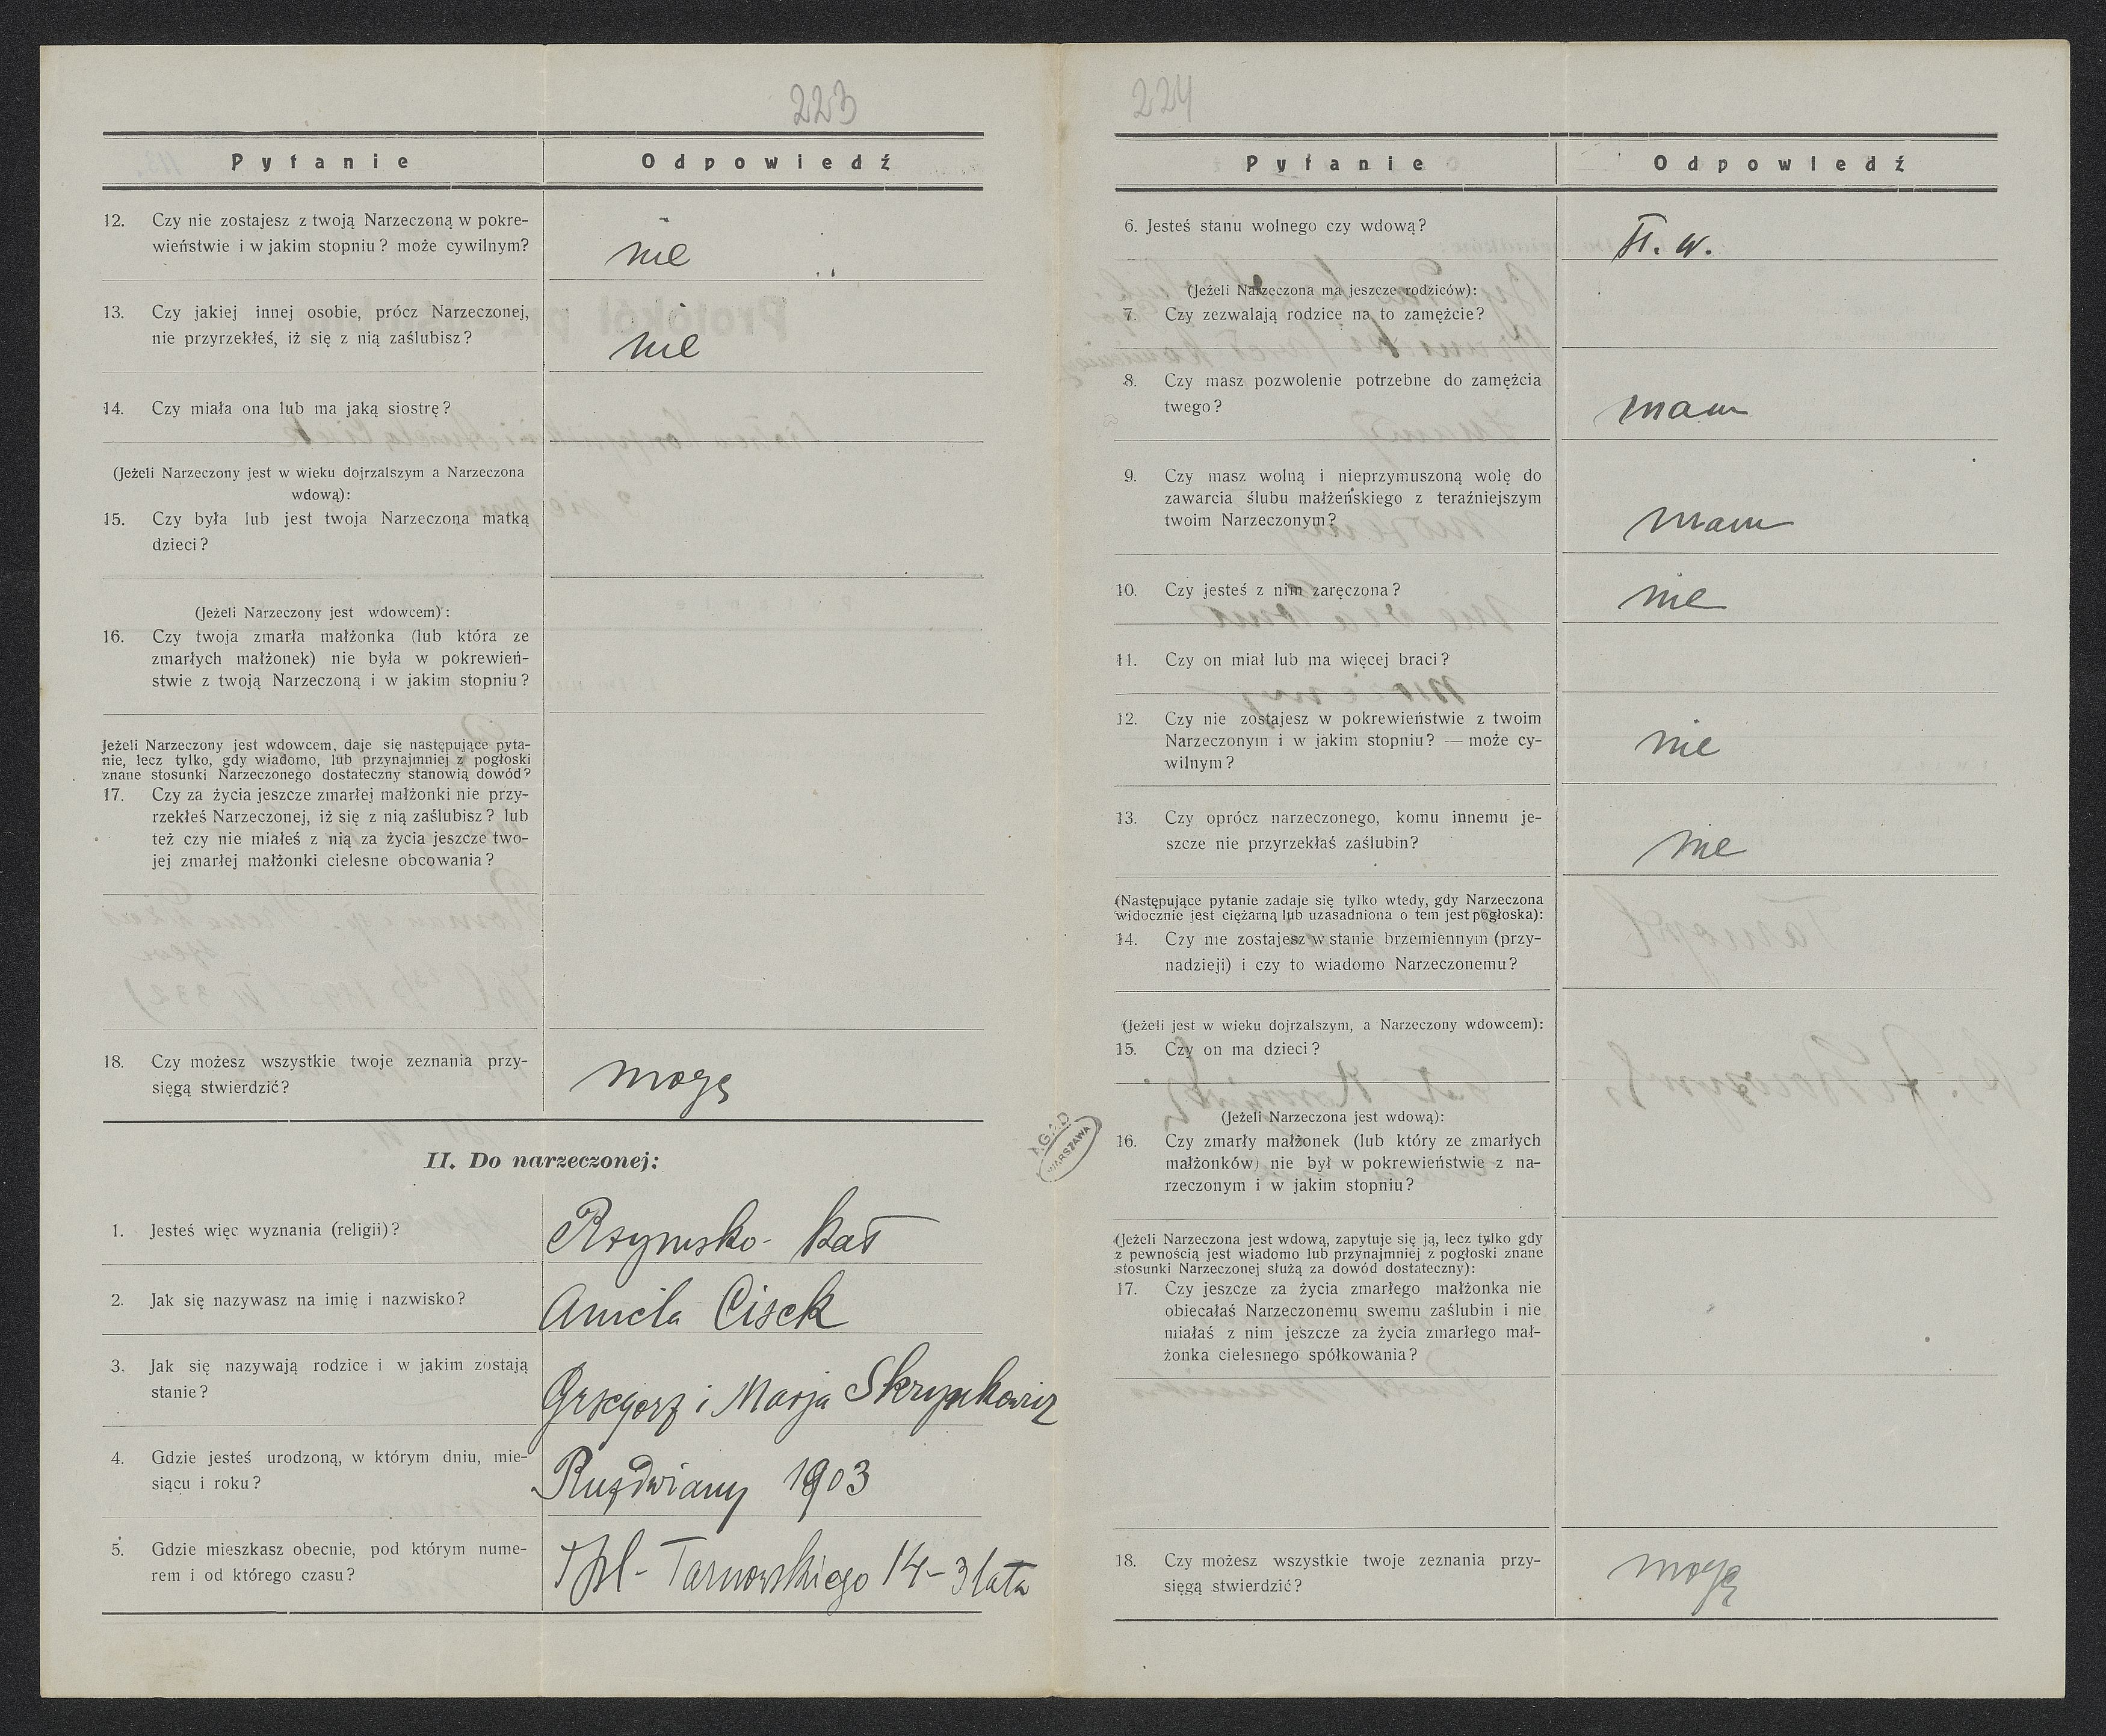 223
Pytanie Odpowiedź
12. Czy nie zostajesz z twoją Narzeczoną w pokre-
wieństwie i w jakim stopniu? może cywilnym?
nie
13. Czy jakiej innej osobie, prócz Narzeczonej,
nie przyrzekłeś, iż się z nią zaślubisz?
nie
14. Czy miała ona lub ma jaką siostrę?
(Jeżeli Narzeczony jest w wieku dojrzalszym a Narzeczona
wdową):
15. Czy była lub jest twoja Narzeczona matką
dzieci?
(Jeżeli Narzeczony jest wdowcem):
16. Czy twoja zmarła małżonka (lub która ze
zmarłych małżonek) nie była w pokrewień-
stwie z twoją Narzeczoną i w jakim stopniu?
Jeżeli Narzeczony jest wdowcem, daje się następujące pyta-
nie, lecz tylko, gdy wiadomo, lub przynajmniej z pogłoski
znane stosunki Narzeczonego dostateczny stanowią dowód?
17. Czy za życia jeszcze zmarłej małżonki nie przy-
rzekłeś Narzeczonej, iż się z nią zaślubisz? lub
też czy nie miałeś z nią za życia jeszcze two-
jej zmarłej małżonki cielesne obcowania?
18. Czy możesz wszystkie twoje zeznania przy-
sięgą stwierdzić?
mogę
II. Do narzeczonej:
1. Jesteś więc wyznania (religii)?
Rzymsko-kat
2. Jak się nazywasz na imię i nazwisko?
Aniela Cisek
3. Jak się nazywają rodzice i w jakim zostają
stanie?
Grzegorz i Marja Skrynkowicz
4. Gdzie jesteś urodzoną, w którym dniu, mie-
siącu i roku?
Ruzdwiany 1903
5. Gdzie mieszkasz obecnie, pod którym nume-
rem i od którego czasu?
Tpl - Tarnowskiego 14 - 3 lata
AGAD
WARSZAWA
224
Pytanie Odpowiedź
6. Jesteś stanu wolnego czy wdową?
st. w.
(Jeżeli Narzęczona ma jeszcze rodziców):
7. Czy zezwalają rodzice na to zamężcie?
8. Czy masz pozwolenie potrzebne do zamężcia
twego?
mam
9. Czy masz wolną i nieprzymuszoną wolę do
zawarcia ślubu małżeńskiego z teraźniejszym
twoim Narzeczonym?
mam
10. Czy jesteś z nim zaręczona?
nie
11. Czy on miał lub ma więcej braci?
12. Czy nie zostajesz w pokrewieństwie z twoim
Narzeczonym i w jakim stopniu? — może cy-
wilnym?
nie
13. Czy oprócz narzeczonego, komu innemu je-
szcze nie przyrzekłaś zaślubin?
nie
(Następujące pytanie zadaje się tylko wtedy, gdy Narzeczona
widocznie jest ciężarną lub uzasadniona o tem jest pogłoska):
14. Czy nie zostajesz w stanie brzemiennym (przy-
nadzieji) i czy to wiadomo Narzeczonemu?
(Jeżeli jest w wieku dojrzalszym, a Narzeczony wdowcem):
15. Czy on ma dzieci?
(Jeżeli Narzeczona jest wdową):
16. Czy zmarły małżonek (lub który ze zmarłych
małżonków) nie był w pokrewieństwie z na-
rzeczonym i w jakim stopniu?
(Jeżeli Narzeczona jest wdową, zapytuje się ją, lecz tylko gdy
z pewnością jest wiadomo lub przynajmniej z pogłoski znane
stosunki Narzeczonej służą za dowód dostateczny):
17. Czy jeszcze za życia zmarłego małżonka nie
obiecałaś Narzeczonemu swemu zaślubin i nie
miałaś z nim jeszcze za życia zmarłego mał-
żonka cielesnego spółkowania?
18. Czy możesz wszystkie twoje zeznania przy-
sięgą stwierdzić?
mogę